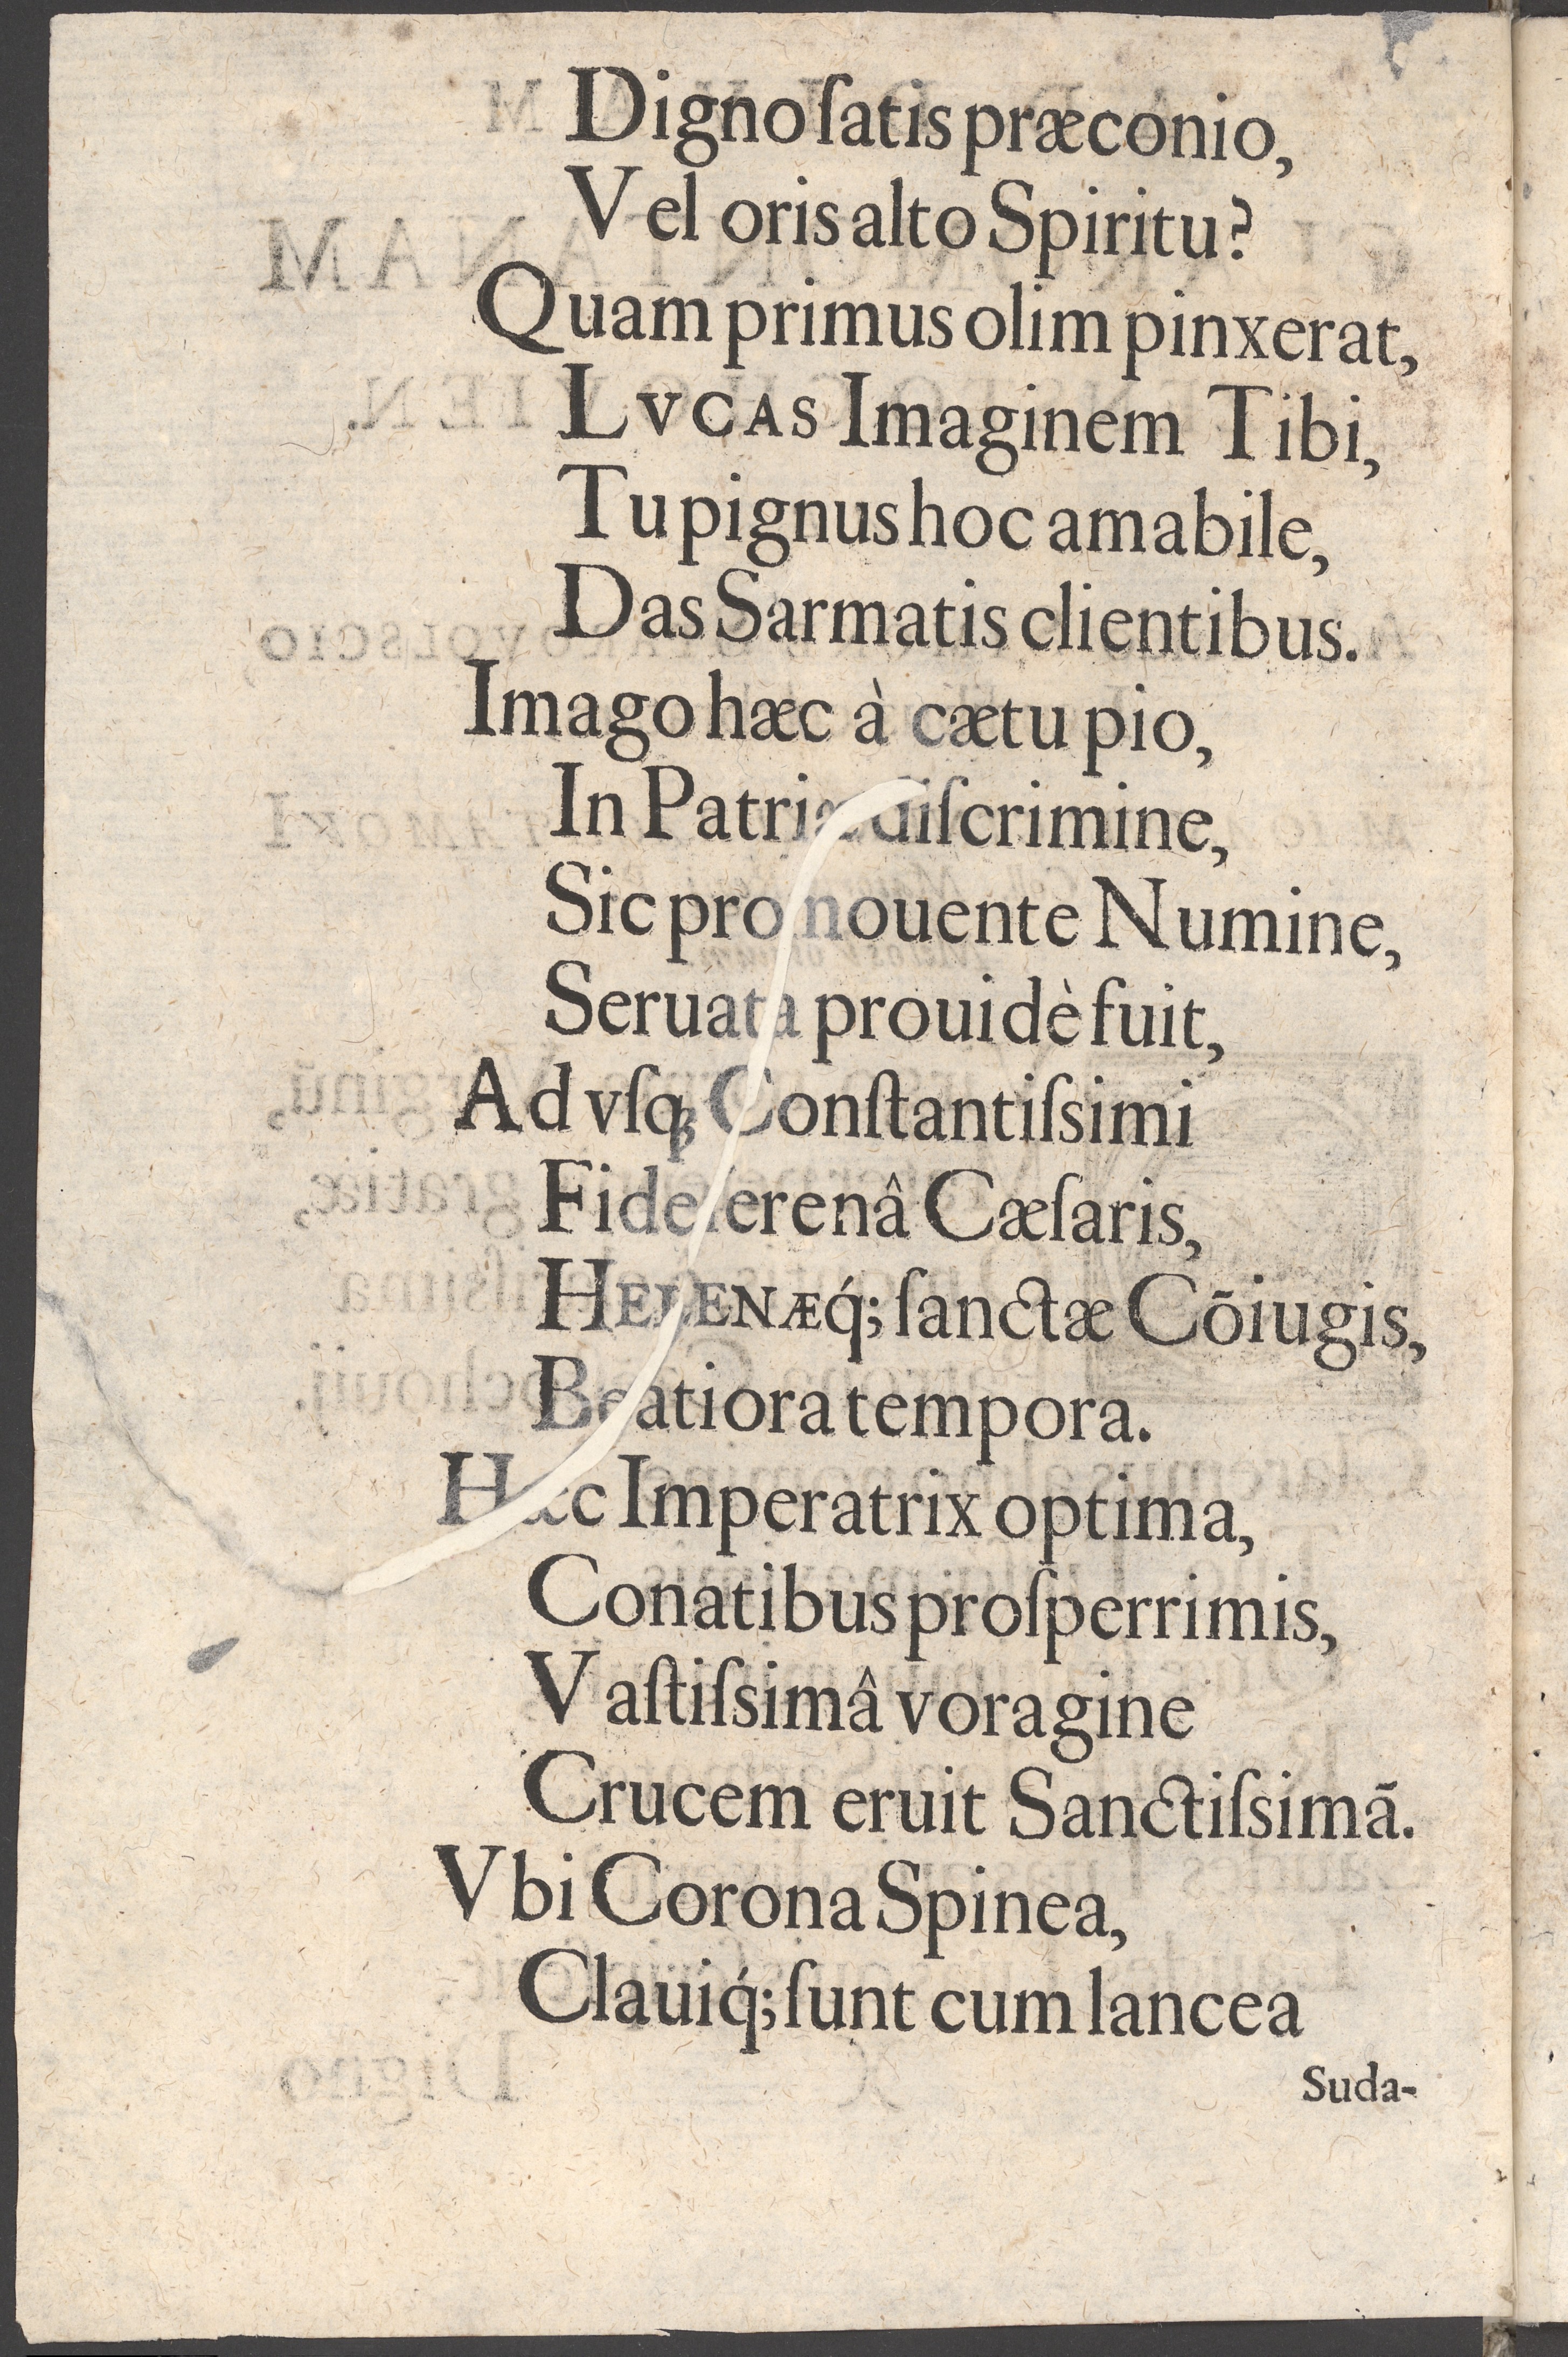 Digno ſatis præconio,
Vel oris alto Spiritu?
Quam primus olim pinxerat,
LVCAS Imaginem Tibi,
Tu pignus hoc amabile,
Das Sarmatis clientibus.
Imago hæc à cætu pio,
In Patriæ diſcrimine,
Sic promouente Numine,
Seruata prouidè fuit,
Ad vſqꝫ Conſtantiſsimi
Fide ſerenâ Cæſaris,
HELENÆq́; ſanctæ Cõiugis,
Beatiora tempora.
Hæc Imperatrix optima,
Conatibus proſperrimis,
Vaſtiſsimâ voragine
Crucem eruit Sanctiſsimã.
Vbi Corona Spinea,
Clauiq́; ſunt cum lancea
Suda-